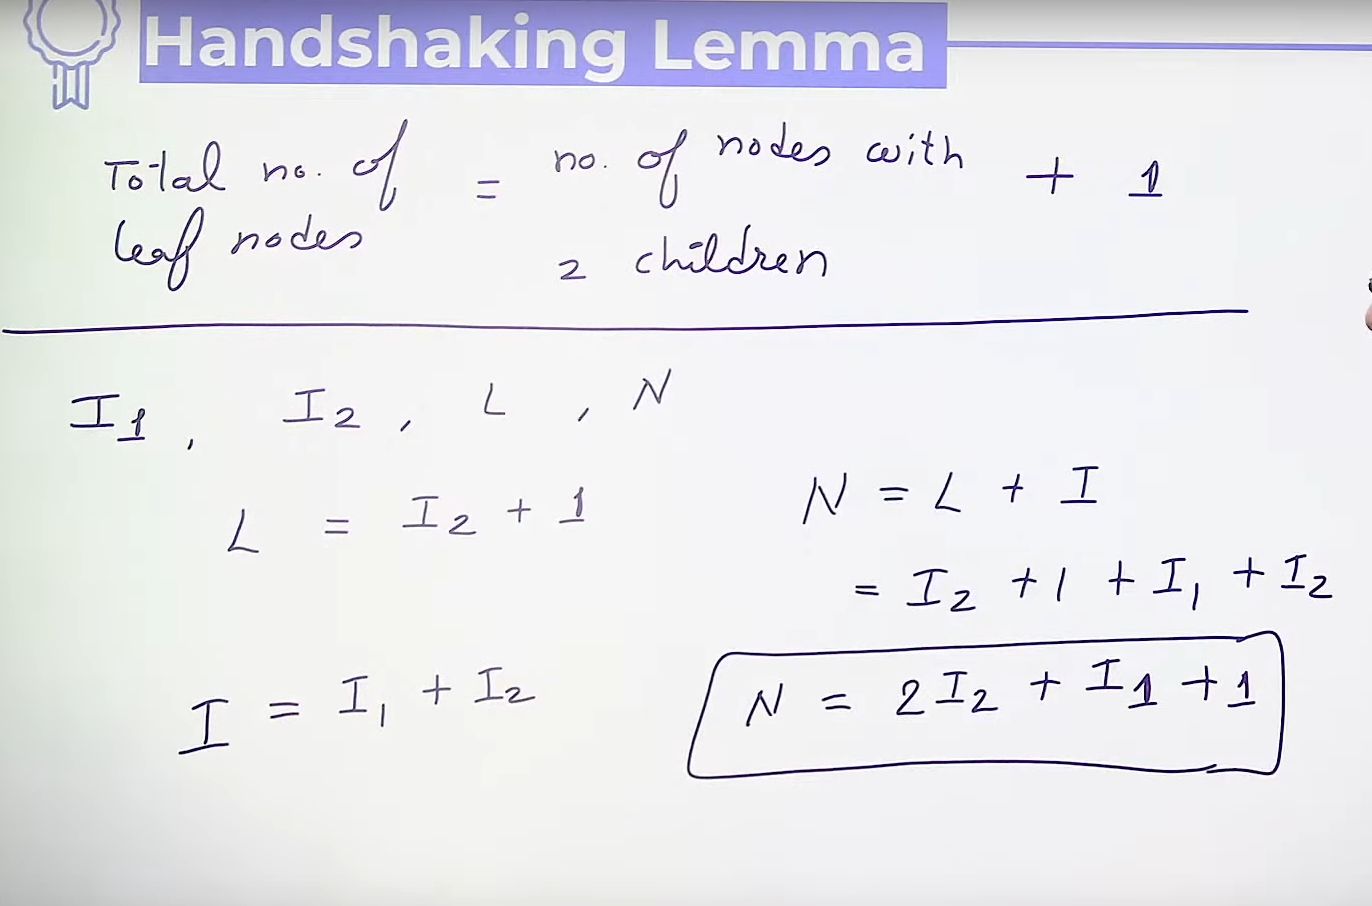 Handshaking Lemma
Total no. of leaf nodes = no. of nodes with 2 children + 1
I1, I2, L, N
L = I2 + 1
I = I1 + I2
N = L + I
= I2 + 1 + I1 + I2
N = 2I2 + I1 + 1